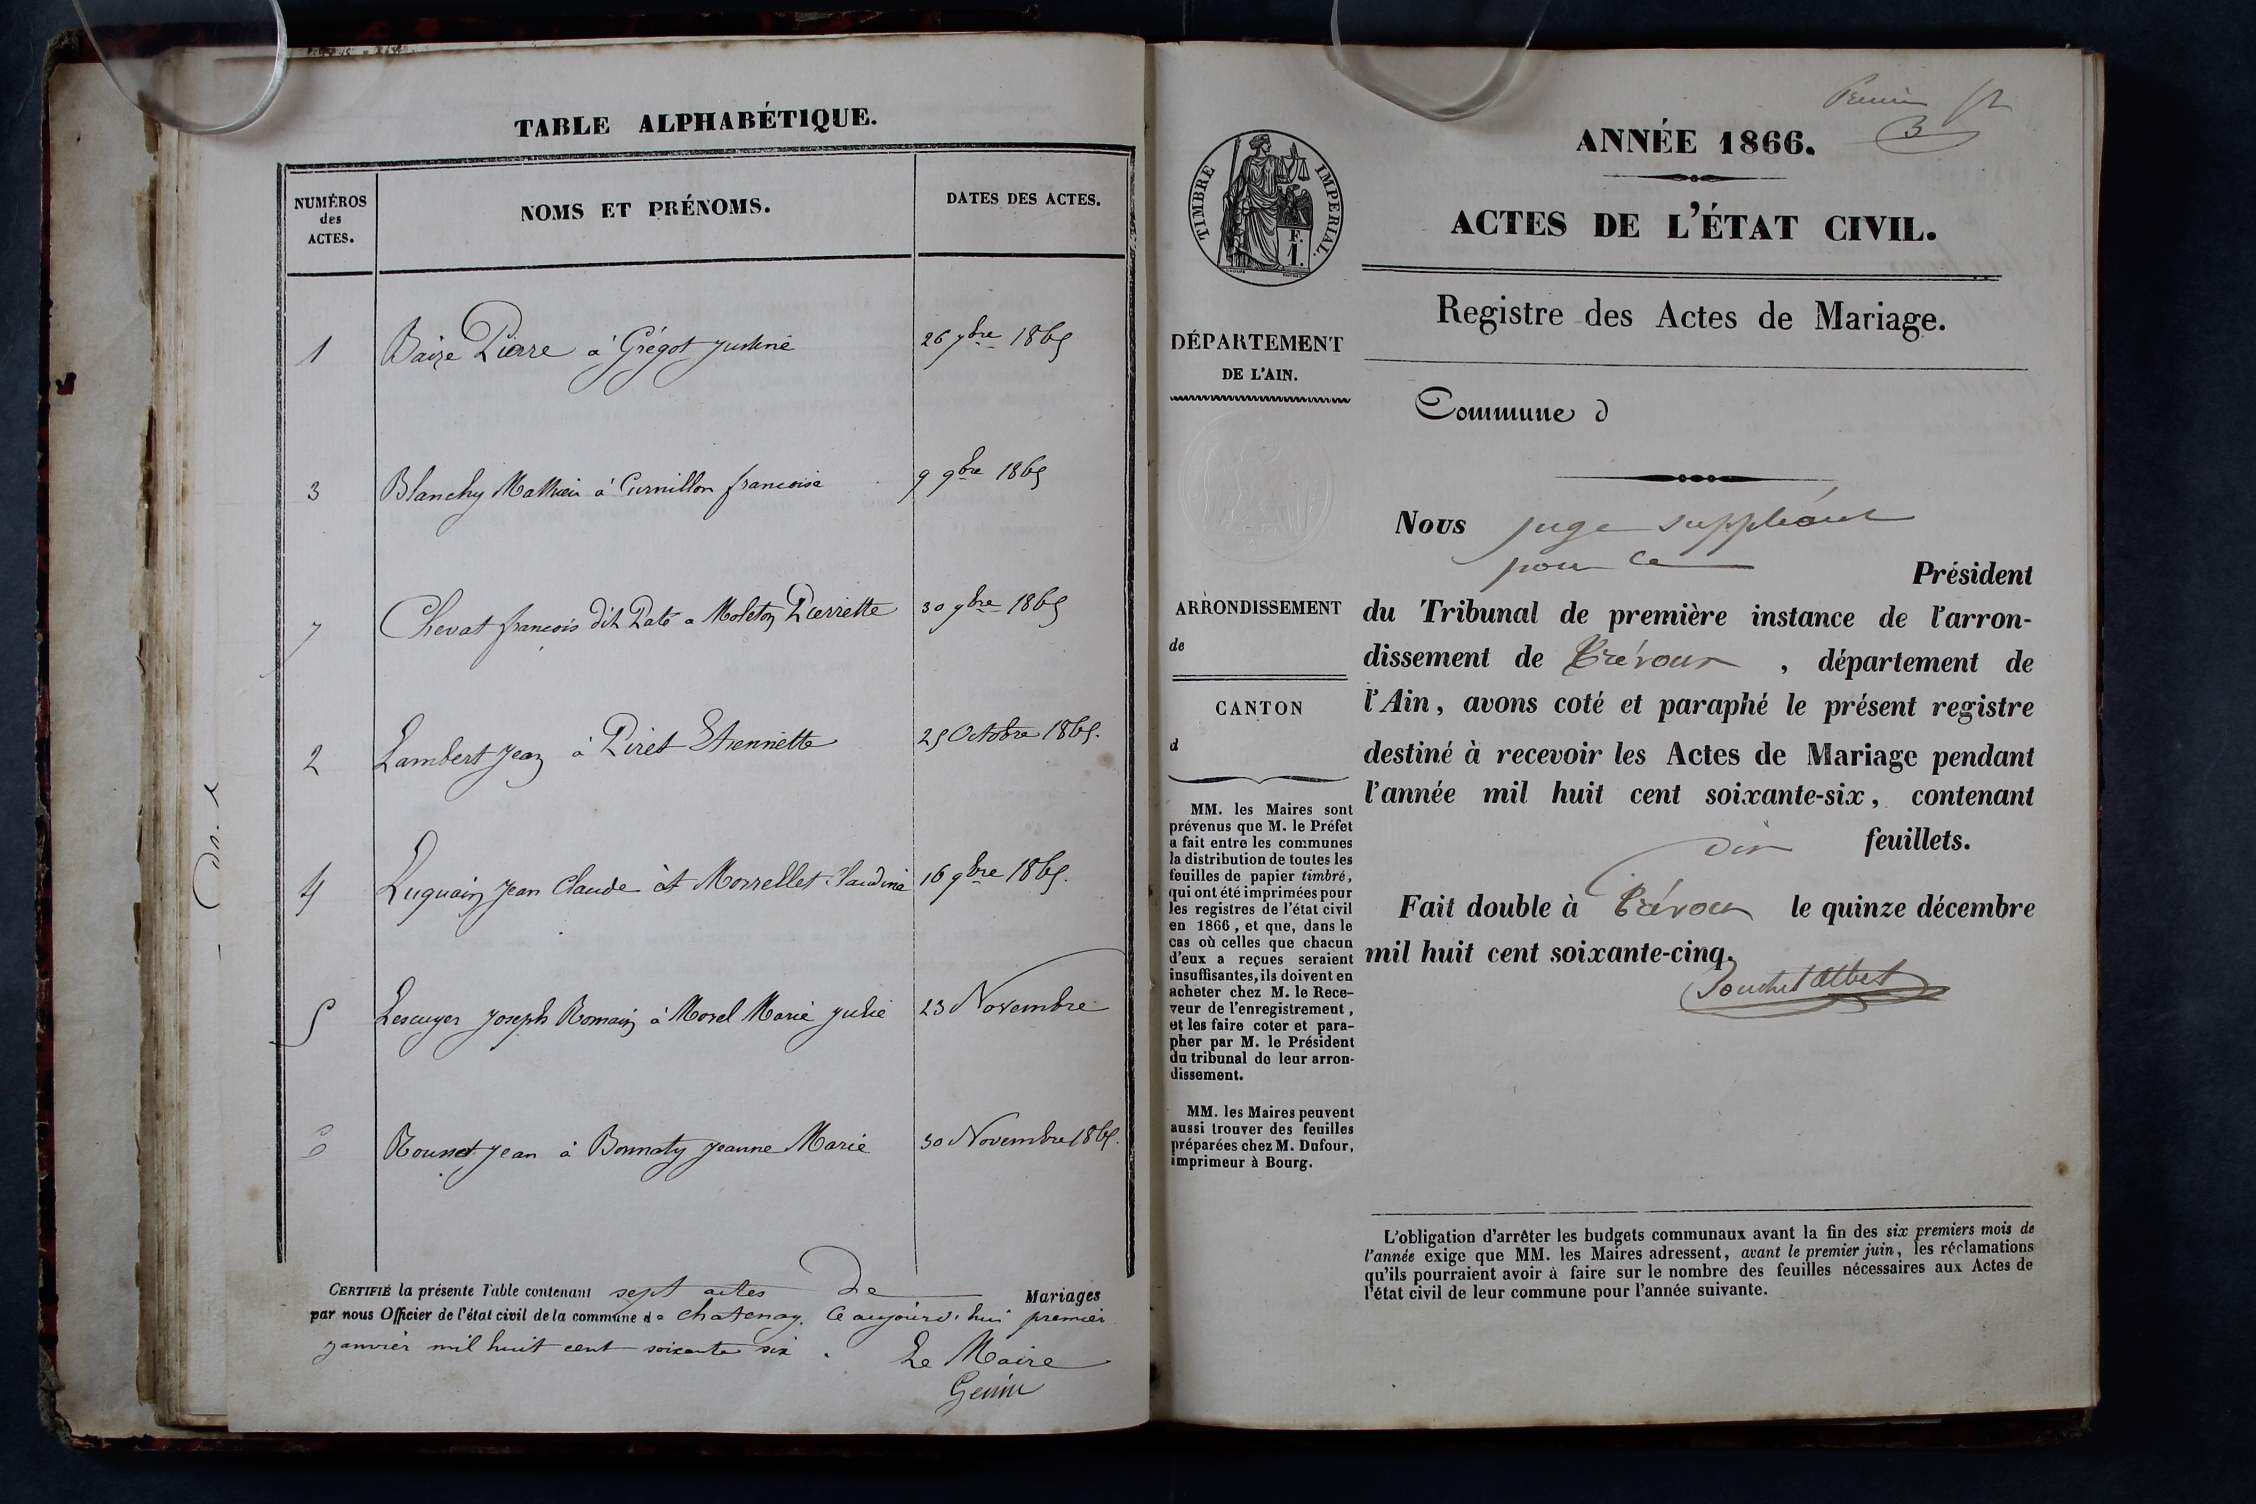 TABLE ALPHABÉTIQUE.
NUMÉROS
des
ACTES.
NOMS ET PRÉNOMS.
DATES DES ACTES.
1 Baize Pierre à Grégot Justine 26 7bre 1865
3 Blanchy Mathieu à Curnillon francoise 9 9bre 1865
7 Chevat françois dit Paté a Moleton Pierrette 30 9bre 1865
2 Lambert Jean à Piret Etiennette 25 Octobre 1865.
4 Luguain Jean Claude à Morrellet Claudine 16 9bre 1865.
5 Lescuyer Joseph Romain à Morel Marie Julie 23 Novembre
6 Rousset Jean à Bonnaty Jeanne Marie 30 Novembre 1865.
CERTIFIÉ la présente Table contenant sept actes De Mariages
par nous Officier de l'état civil de la commune de chatenay. Ce aujourd'hui premier
janvier mil huit cent soixante six.
Le Maire
Genin
3
ANNÉE 1866.
ACTES DE L'ÉTAT CIVIL.
Registre des Actes de Mariage.
TIMBRE IMPERIAL.
F.
1.
DÉPARTEMENT
DE L'AIN.
ARRONDISSEMENT
de
CANTON
d
MM. les Maires sont
prévenus que M. le Préfet
a fait entre les communes
la distribution de toutes les
feuilles de papier timbré,
qui ont été imprimées pour
les registres de l'état civil
en 1866, et que, dans le
cas où celles que chacun
d'eux a reçues seraient
insuffisantes, ils doivent en
acheter chez M. le Rece-
veur de l'enregistrement,
et les faire coter et para-
pher par M. le Président
du tribunal de leur arron-
dissement.
MM. les Maires peuvent
aussi trouver des feuilles
préparées chez M. Dufour,
imprimeur à Bourg.
Commune d
Nous juge suppléant
pour le Président
du Tribunal de première instance de l'arron-
dissement de Trévoux, département de
l'Ain, avons coté et paraphé le présent registre
destiné à recevoir les Actes de Mariage pendant
l'année mil huit cent soixante-six, contenant
dix feuillets.
Fait double à Trévoux le quinze décembre
mil huit cent soixante-cinq.
L'obligation d'arrêter les budgets communaux avant la fin des six premiers mois de
l'année exige que MM. les Maires adressent, avant le premier juin, les réclamations
qu'ils pourraient avoir à faire sur le nombre des feuilles nécessaires aux Actes de
l'état civil de leur commune pour l'année suivante.